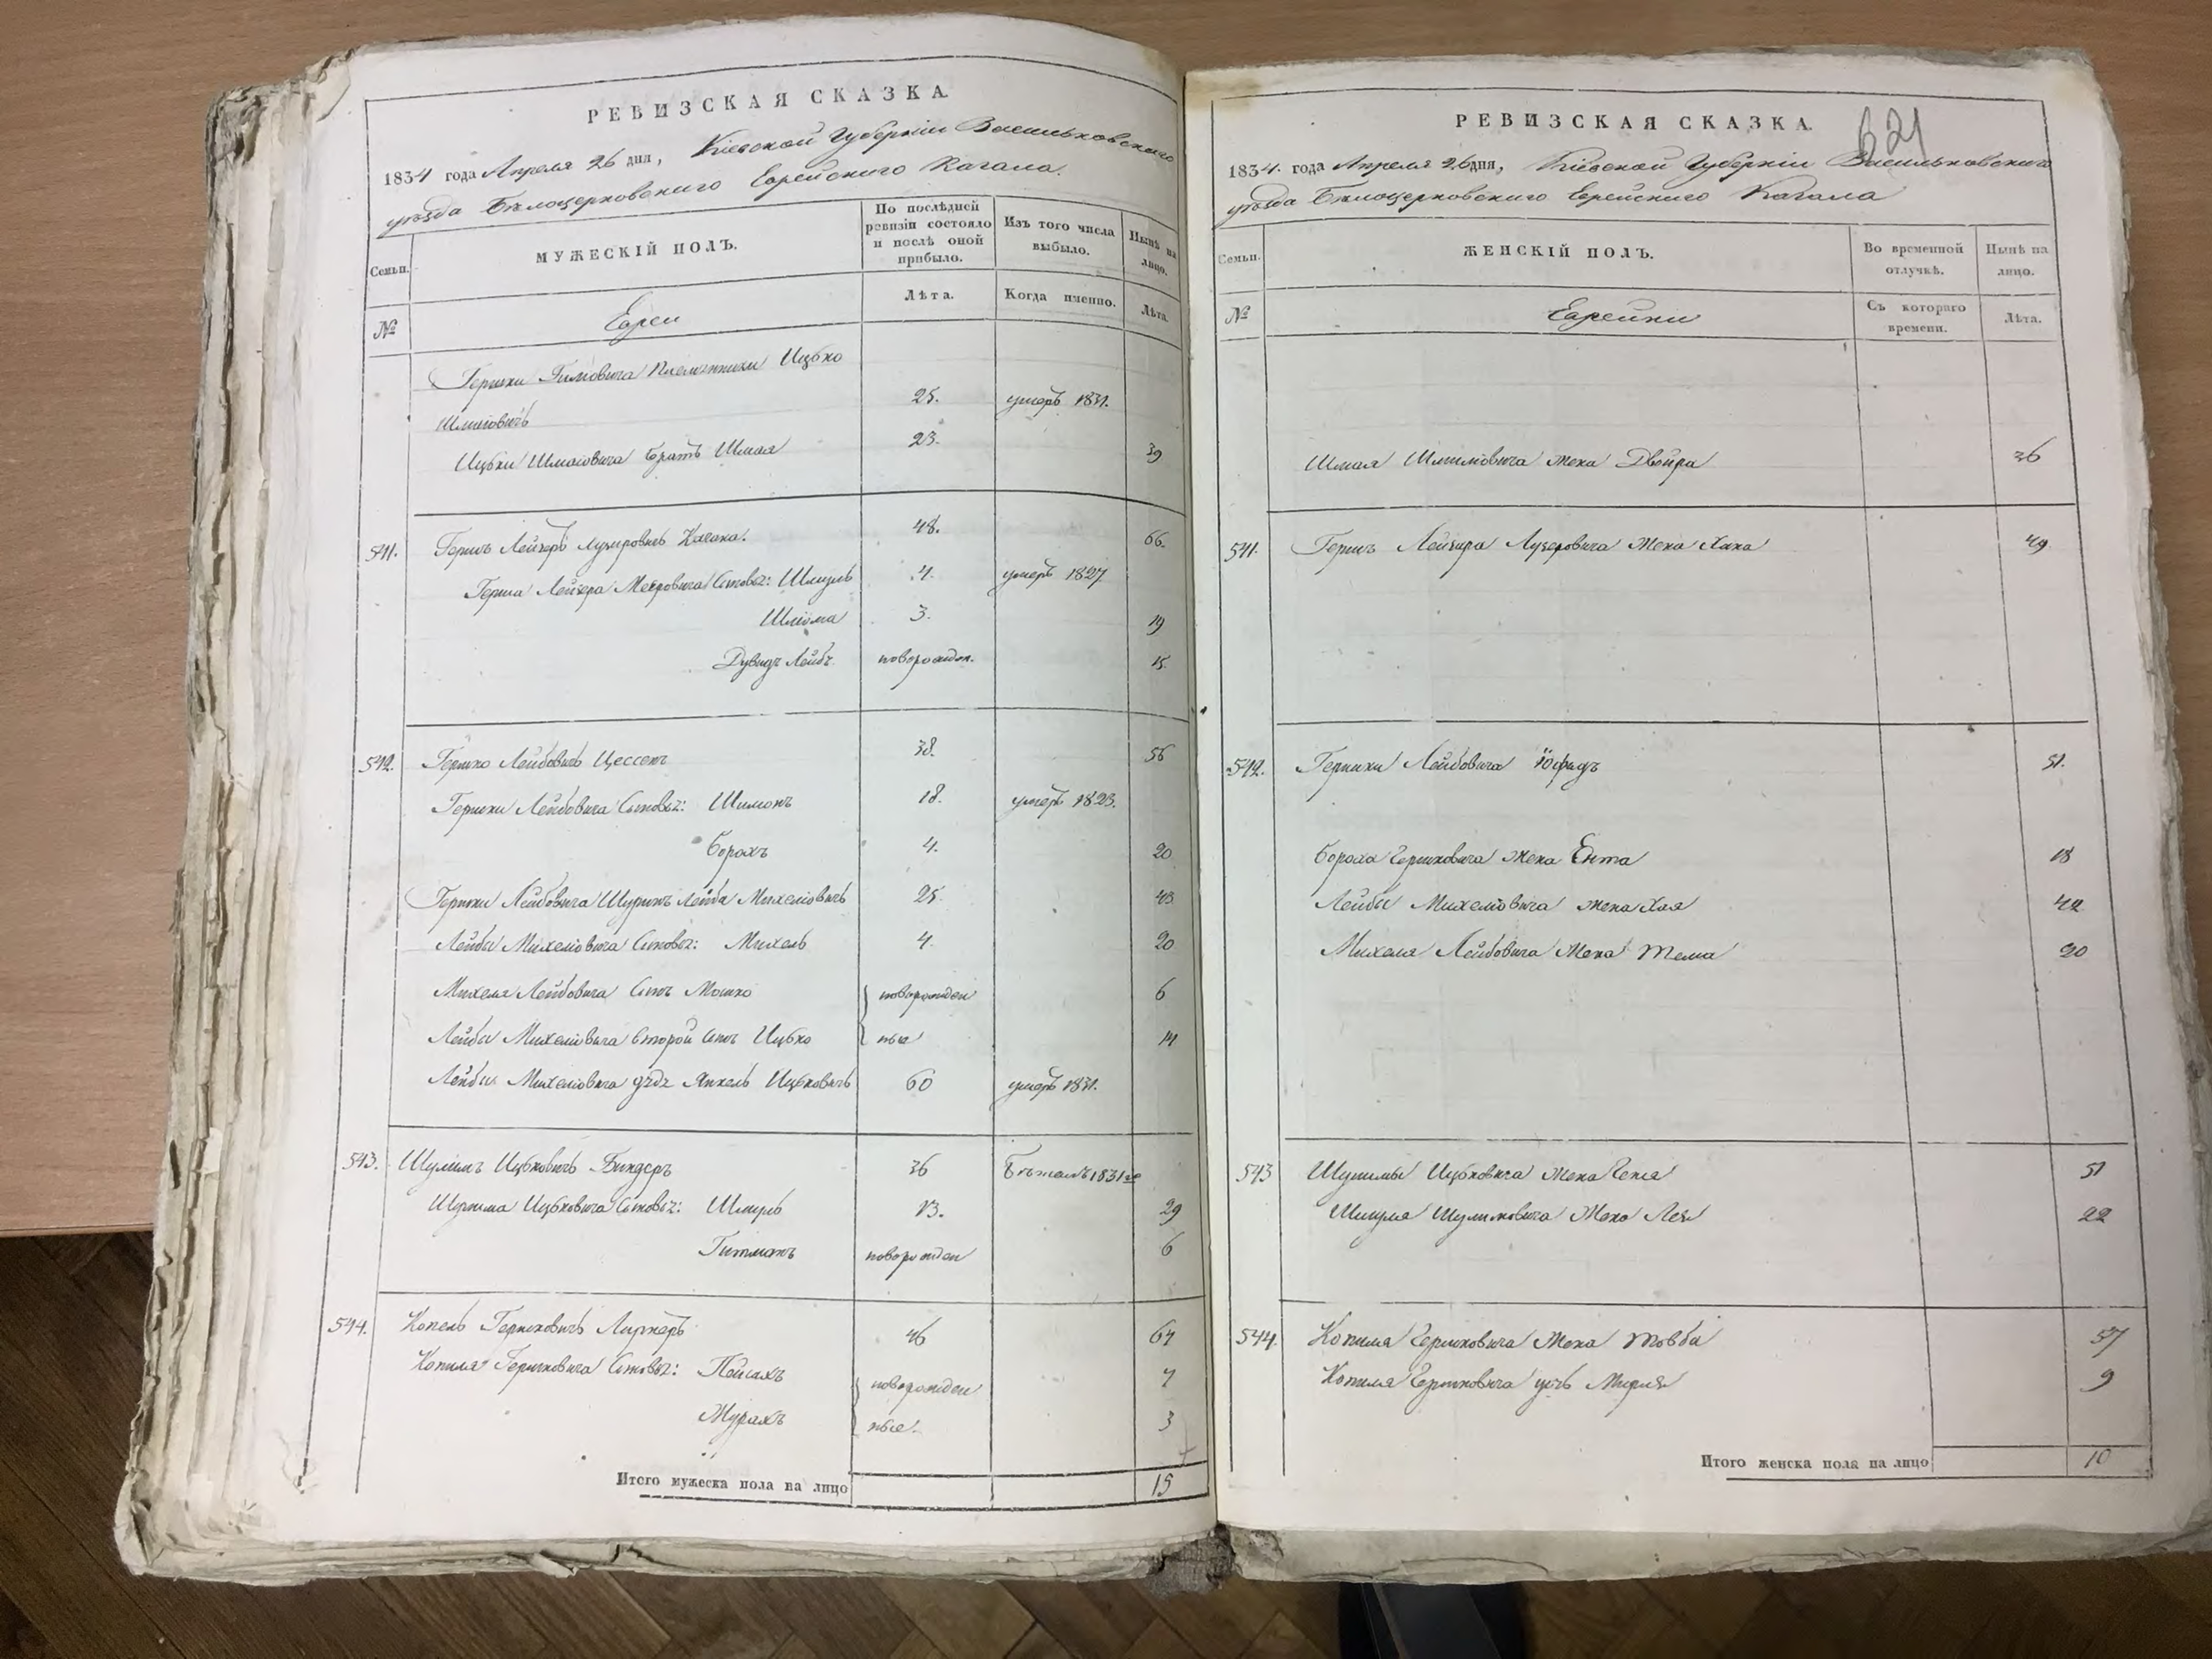 РЕВИЗСКАЯ СКАЗКА.
1834 года Апреля 26 дня, Кіевской Губерніи Васильковскаго
уѣзда Бѣлоцерковского Еврейского Кагала.
Семьи.
МУЖЕСКІЙ ПОЛЪ.
По послѣдней ревизіи состояло и послѣ оной прибыло.
Изъ того числа выбыло.
Нынѣ на лицо.
№
Евреи
Лѣта.
Когда именно.
Лѣта.
Гершки племянники Ицько
Шмиловичъ 25. умеръ 1831.
Ицьки брать Шмая 23. 39
541. Гершъ Лейзеръ 48. 66.
Герша Лейзера Сыновья: Шмуль 4. умеръ 1827
Шлиома 3. 19
Дувидъ Лейбъ новорожден. 15
542. Гершко Лейбовичъ 38. 56
Гершки Лейбовича Сыновья: Шимонъ 18. умеръ 1823.
Борахъ 4. 20
Гершки Лейбовича Шуринъ Лейба Михелiовичъ 25. 43
Лейбы Михелiовича Сыновья: Михель 4. 20
Михеля Лейбовича Сынъ Мошко новорожден 6
Лейбы Михелiовича второй Сынъ Ицько ные 14
Лейбы Михелiовича дядя Янкель Ицковичъ 60 умеръ 1831.
543. Шулимъ Ицковичъ Биндеръ 36 1831
Шулима Ицковича Сыновья: Шмуль 13. 29
Гитманъ новорожден 6
544. Копель Гершковичъ 46 64
Копиля Гершковича Сыновья: Пейсахъ новорожден 7
ные. 3
Итого мужеска пола на лицо 15
621
РЕВИЗСКАЯ СКАЗКА.
1834. года Апреля 26 дня, Кіевской Губерніи Васильковскаго
уѣзда Бѣлоцерковского Еврейского Кагала
Семьи.
ЖЕНСКІЙ ПОЛЪ.
Во временной отлучкѣ.
Нынѣ на лицо.
№
Еврейки
Съ котораго времени.
Лѣта.
Шмая жена Двойра 36
541. Гершъ Лейзера Лузеровича жена Хана 49
542. Гершки Лейбовича Юфидъ 51.
Бороха Гершковича жена Ента 18
Лейбы Михелiовича жена Хая 42
Михеля Лейбовича жена Тема 20
543 Ицковича жена Геня 51
Шмуля Шулимовича жена Лея 22
544. Копиля Гершковича жена Товба 57
Копиля Гершковича дочь 9
Итого женска пола на лицо 10